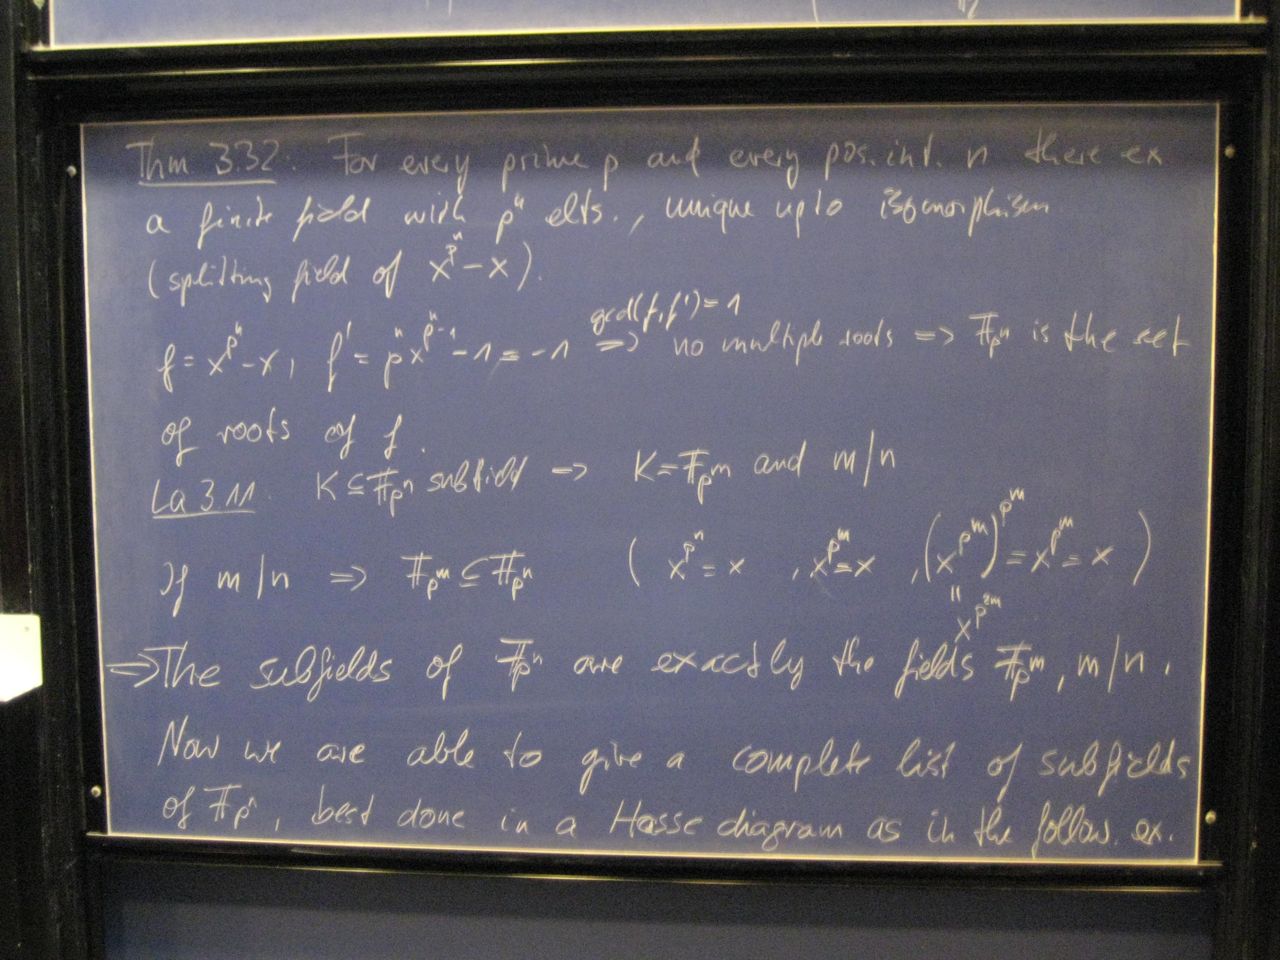 Thm 3.32: For every prime p and every pos. int. n there ex
a finite field with pⁿ elts., unique up to isomorphism
(splitting field of x^{pⁿ} - x).
gcd(f,f')=1
f = x^{pⁿ} - x, f' = pⁿ x^{pⁿ-1} - 1 = -1 => no multiple roots => 𝔽_{pⁿ} is the set
of roots of f.
La 3.11. K ⊆ 𝔽_{pⁿ} subfield => K = 𝔽_{p^m} and m/n
If m/n => 𝔽_{p^m} ⊆ 𝔽_{pⁿ} ( x^{pⁿ} = x , x^{p^m} = x , (x^{p^m})^{p^m} = x^{p^m} = x )
||
x^{p^{2m}}
=> The subfields of 𝔽_{pⁿ} are exactly the fields 𝔽_{p^m}, m/n.
Now we are able to give a complete list of subfields
of 𝔽_{pⁿ}, best done in a Hasse diagram as in the follow. ex.